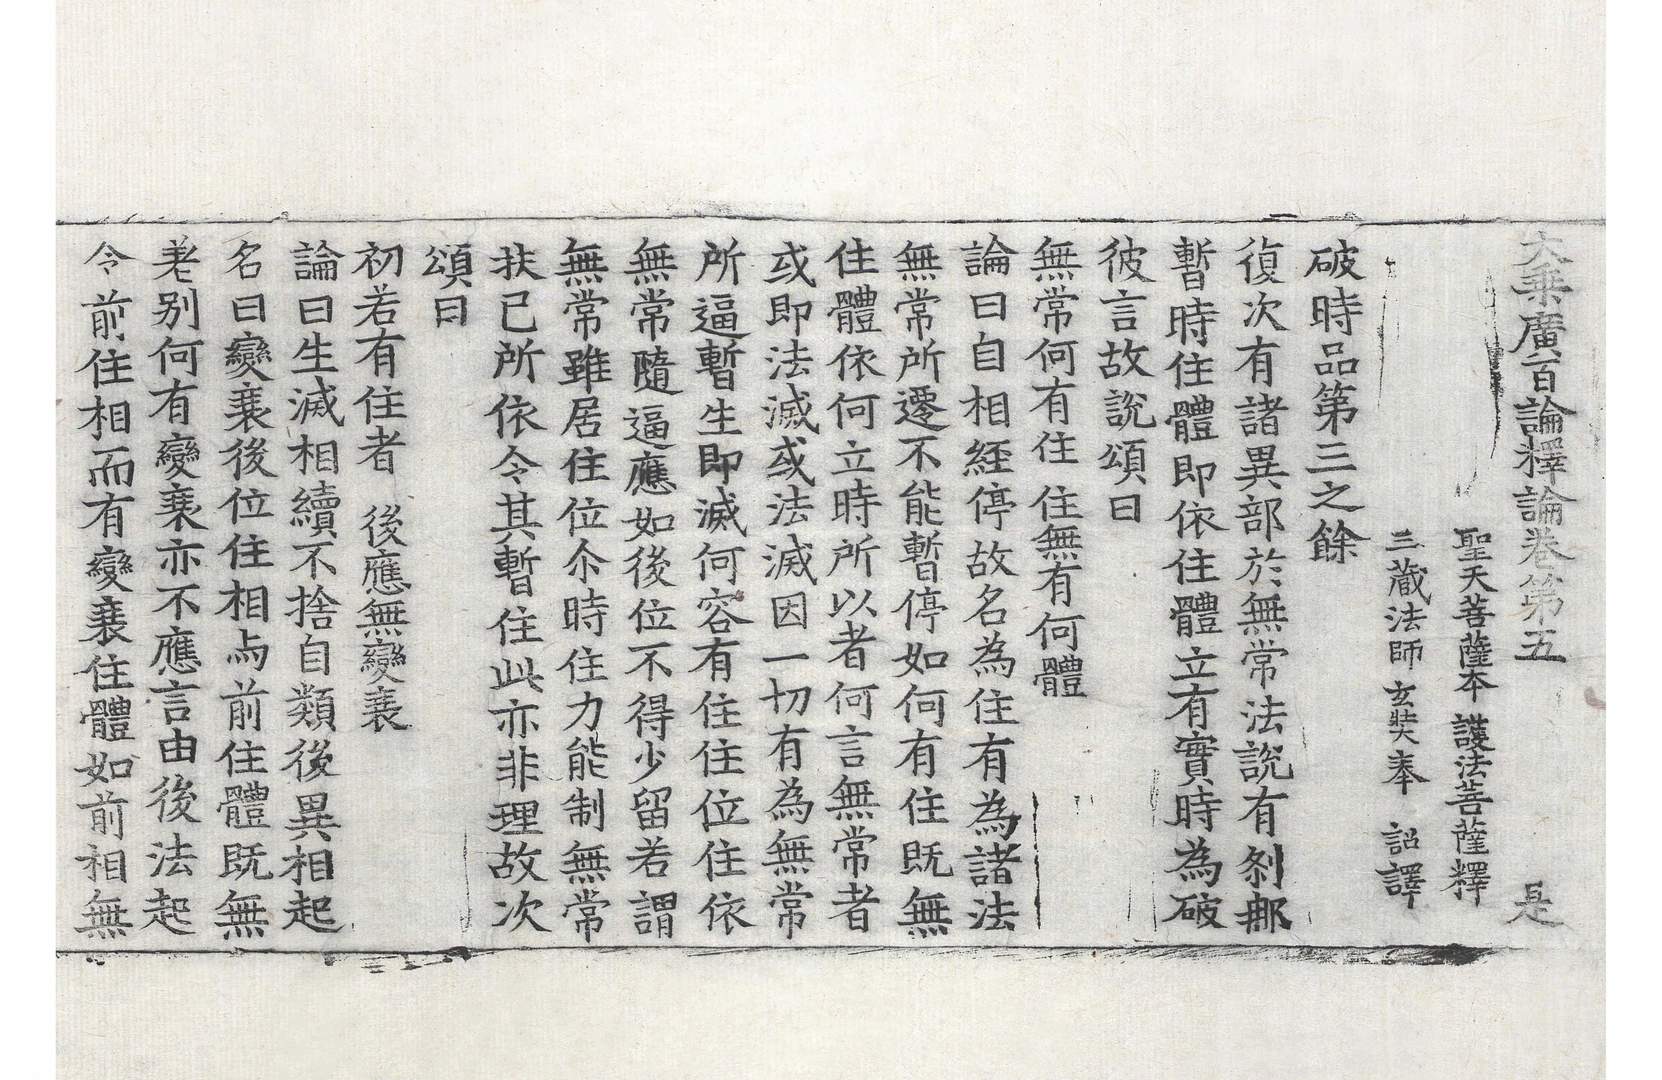 大乘廣百論釋論卷第五 是
聖天菩薩本 護法菩薩釋
三藏法師 玄奘奉 詔譯
破時品第三之餘
復次有諸異部於無常法說有剎那
暫時住體即依住體立有實時為破
彼言故說頌曰
無常何有住 住無有何體
論曰自相經停故名為住有為諸法
無常所遷不能暫停如何有住既無
住體依何立時所以者何言無常者
或即法滅或法滅因一切有為無常
所逼暫生即滅何容有住住位住依
無常隨逼應如後位不得少留若謂
無常雖居住位尒時住力能制無常
扶已所依令其暫住此亦非理故次
頌曰
初若有住者 後應無變衰
論曰生滅相續不捨自類後異相起
名曰變衰後位住相与前住體既無
差别何有變衰亦不應言由後法起
令前住相而有變衰住體如前相無